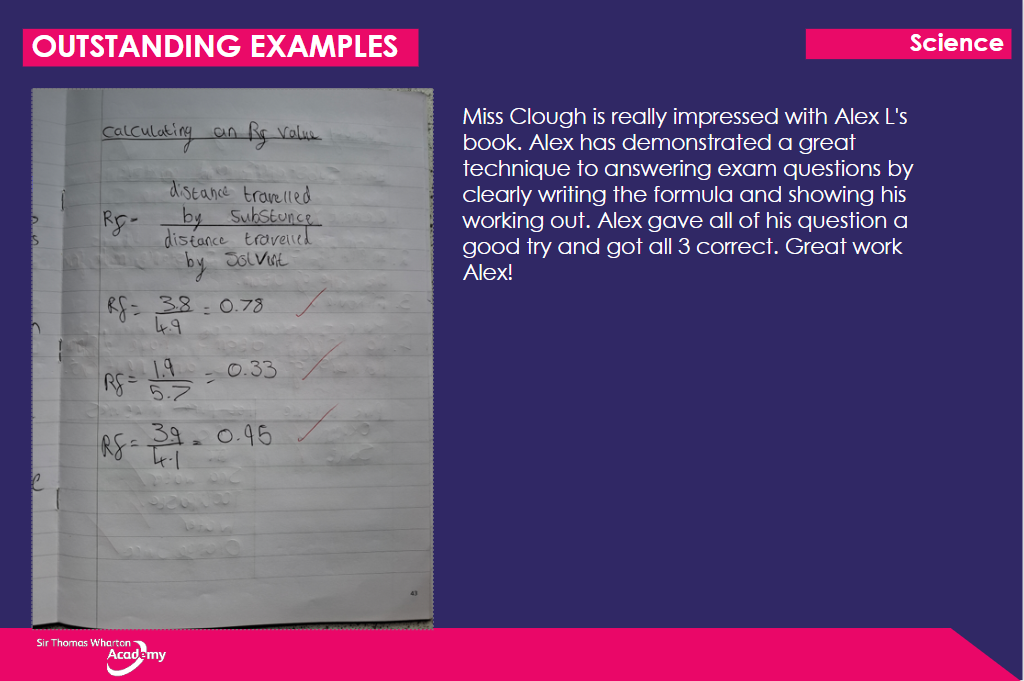 OUTSTANDING EXAMPLES
Science
calculating an Rf value
distance travelled
Rf = by substance
distance travelled
by Solvent
Rf = 3.8 = 0.78
4.9
Rf = 1.9 = 0.33
5.7
Rf = 3.9 = 0.95
4.1
43
Miss Clough is really impressed with Alex L's
book. Alex has demonstrated a great
technique to answering exam questions by
clearly writing the formula and showing his
working out. Alex gave all of his question a
good try and got all 3 correct. Great work
Alex!
Sir Thomas Wharton
Academy